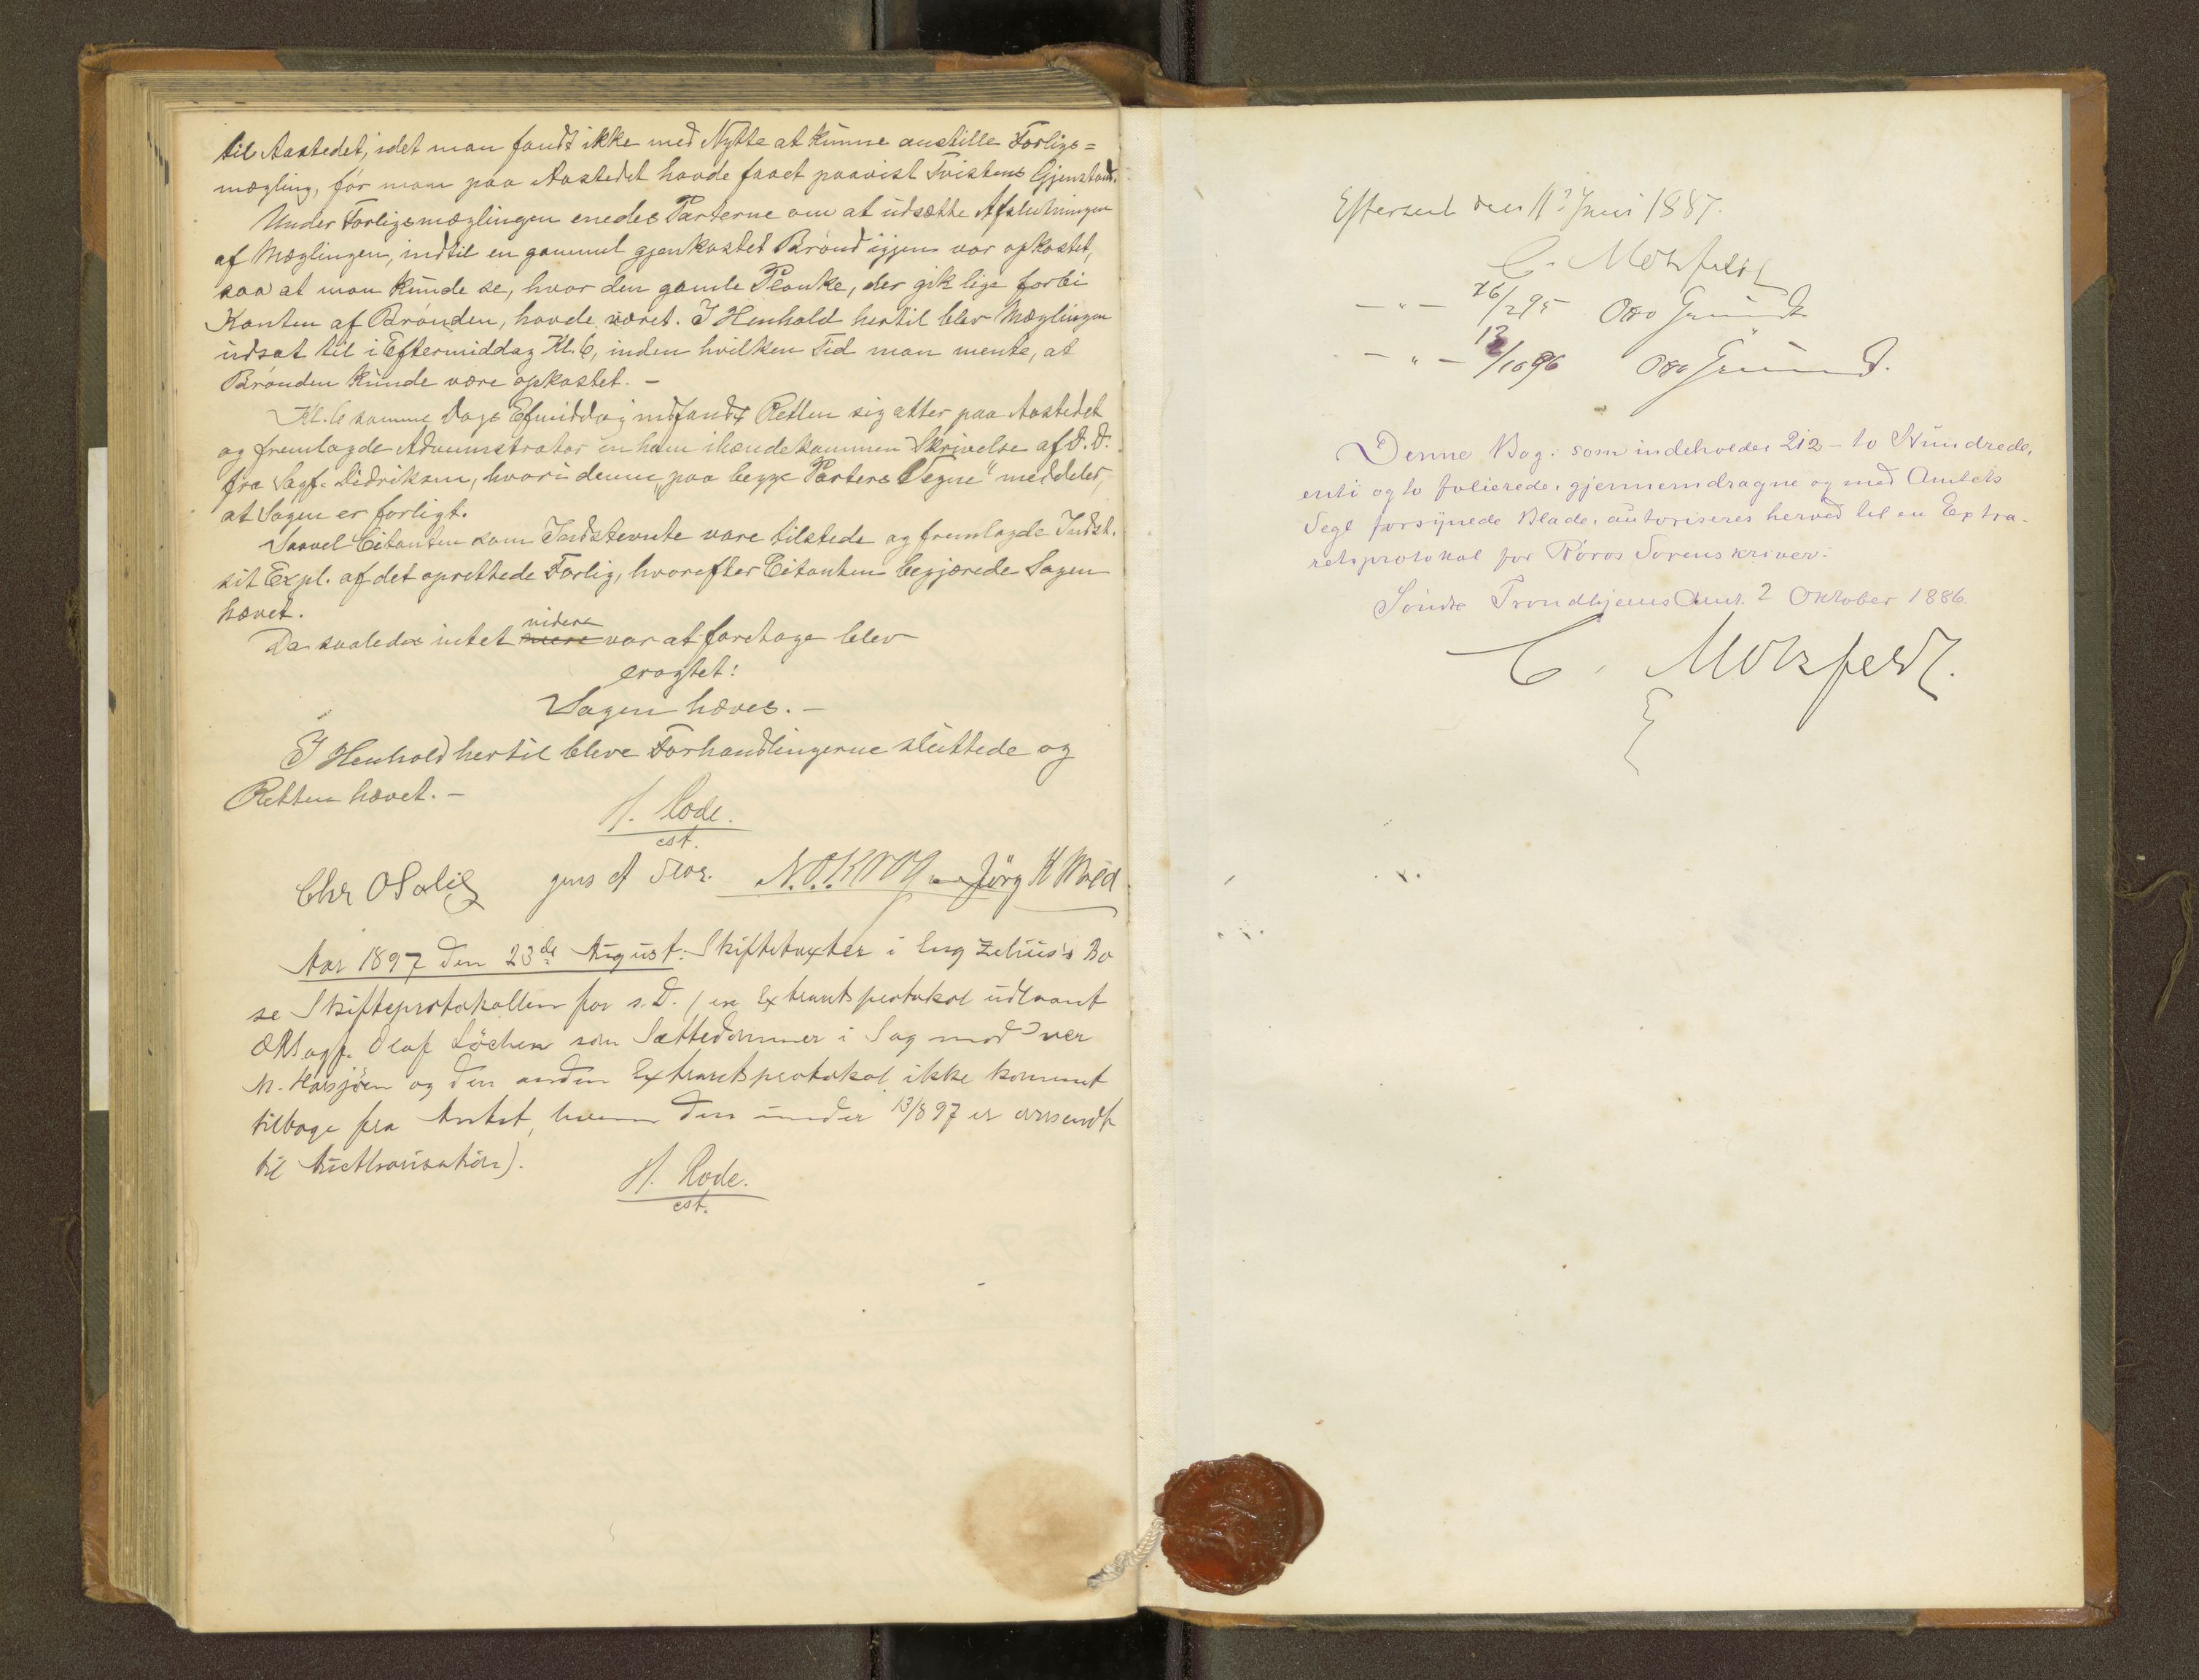 til Aastedet, idet man fandt ikke med Nytte at kunne anstille Forligs=
mægling, før man paa Aastedet havde faaet paavist Tvistens Gjenstand.
Under Forligsmæglingen enedes Parterne om at udsætte Afslutningen
af Mæglingen, indtil en gammel gjenkastet Brønd igjen var opkastet,
saa at man kunde se, hvor den gamle Planke, der gik lige forbi
Kanten af Brønden, havde været. I Henhold hertil blev Mæglingen
udsat til i Eftermiddag Kl. 6, inden hvilken Tid man mente, at
Brønden kunde være opkastet. –
Kl. 6 samme Dags Efmiddag indfandt Retten sig atter paa Aastedet
og fremlagde Administrator en ham ihændekommen Skrivelse af D.D.
fra Sagf. Didriksen, hvori denne "paa begge Parters Vegne" meddeler,
at Sagen er forligt.
Saavel Citanten som Indstevnte vare tilstede og fremlagde Indst.
sit Expl. af det oprettede Forlig, hvorefter Citanten begjærede Sagen
hævet.
Da saaledes intet mere videre var at foretage blev
eragtet:
Sagen hæves. –
I Henhold hertil bleve Forhandlingerne sluttede og
Retten hævet. –
H. Rode.
cst.
Chr O Galig Jens N.O.Krog Jörg H
Aar 1897 den 23de August. Skiftetaxter i Bo
se Skifteprotokollen for s.D. (en Extraretsprotokol udlaant
Olaf Löchen som Sættedommer i Sag mod Iver
M. og den anden Extraretsprotokol ikke kommet
tilbage fra Amtet, hvem den under 13/8 97 er oversendt
til Authorisation).
H. Rode.
cst.
Efterseet den 11 Juni 1887.
C. Motzfeldt
– " – 26/2 95 Otto Grundt
– " – 13/10 96 Otto Grundt.
Denne Bog, som indeholder 212 – to Hundrede,
enti og to folierede, gjennemdragne og med Amtets
Segl forsynede Blade, autoriseres herved til en Extra-
retsprotokol for Røros Sorenskriveri.
Søndre Trondhjems Amt. 2 Oktober 1886
C. Motzfeldt.